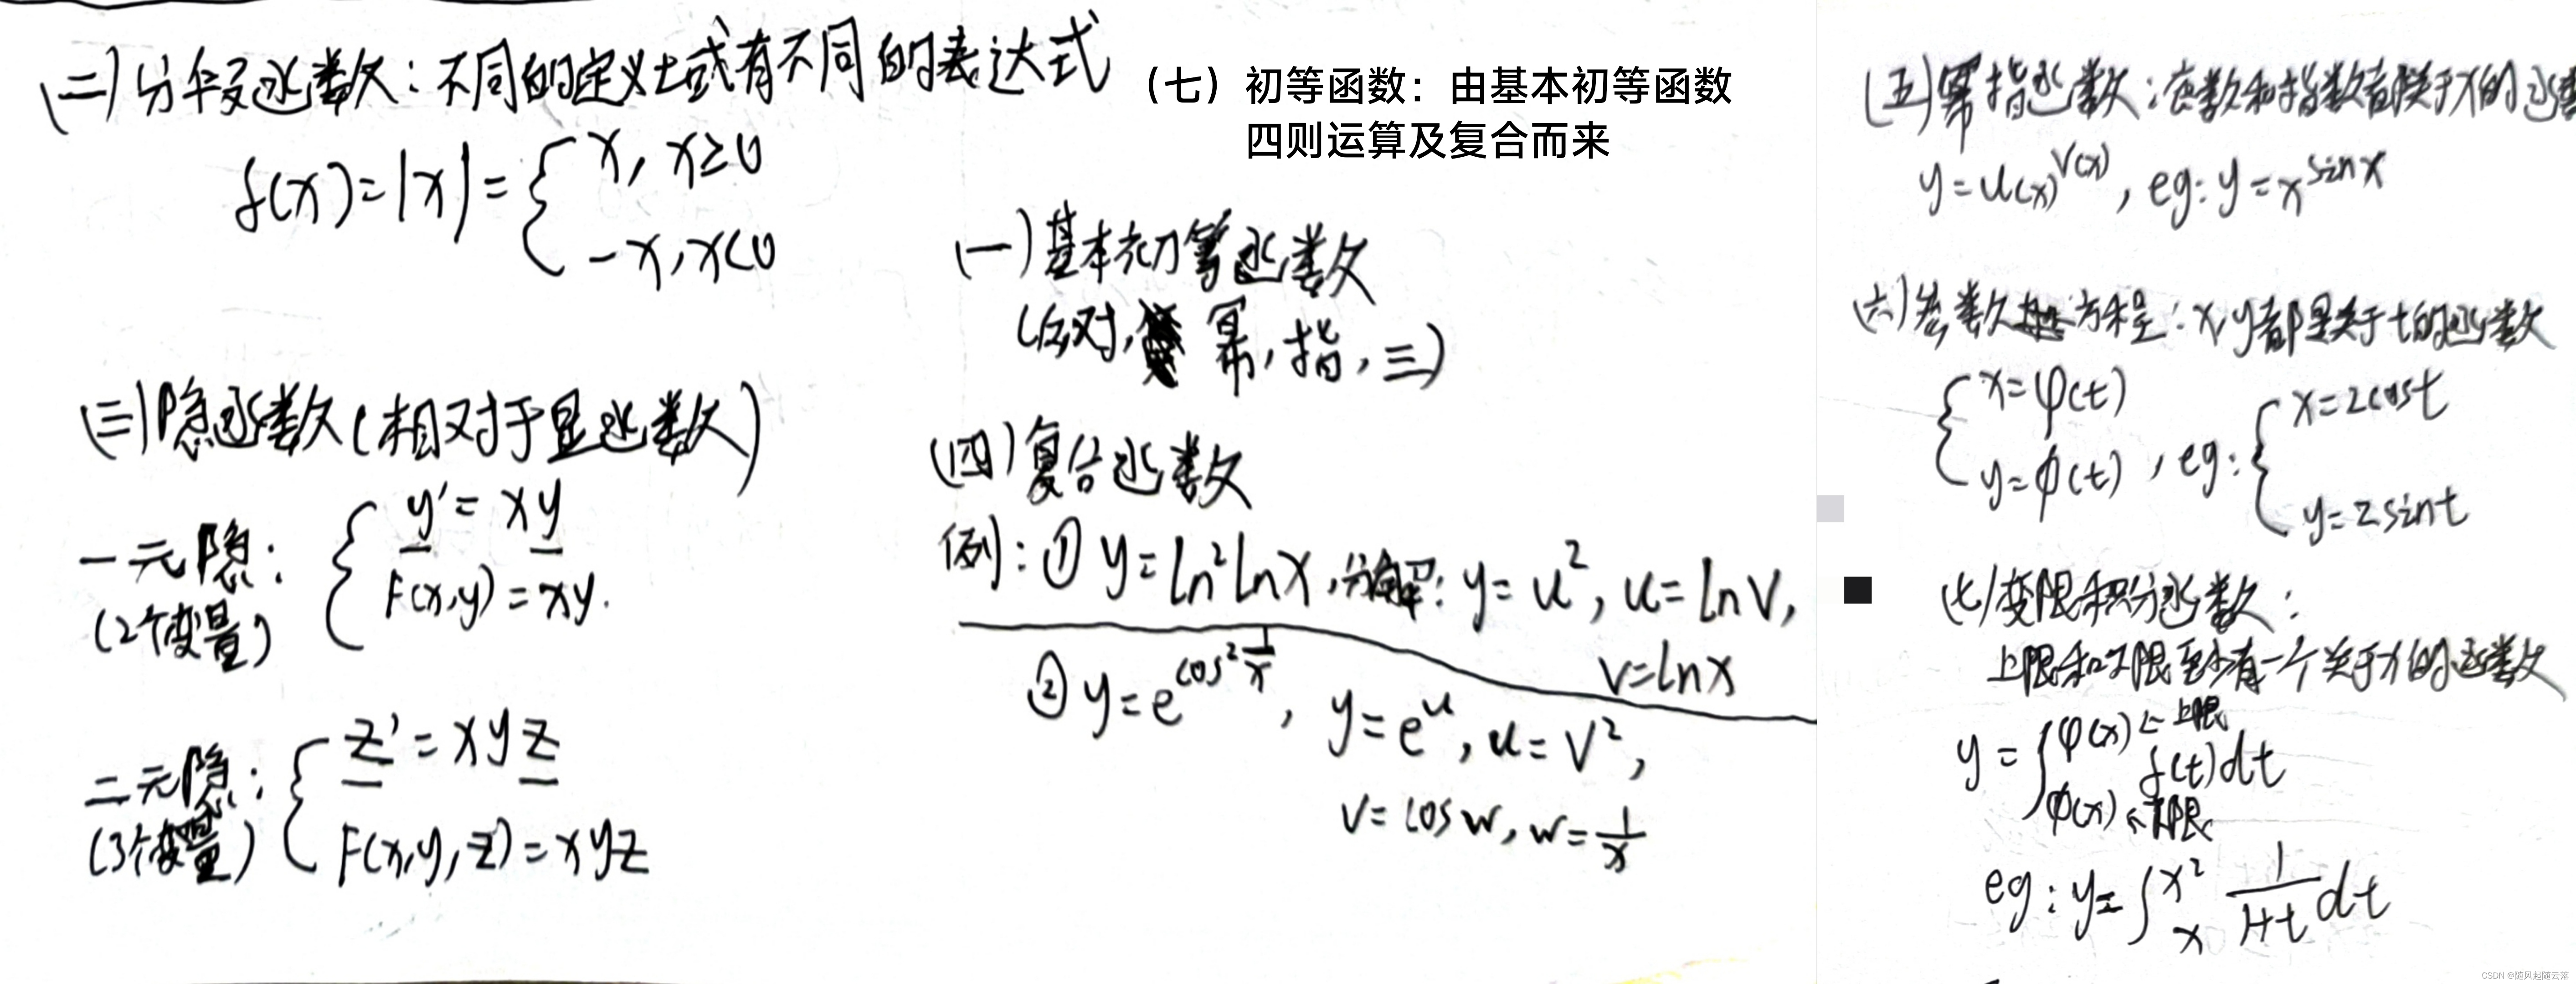 (二)分段函数：不同的定义域有不同的表达式
f(x)=|x|={x, x≥0
-x, x<0
(三)隐函数(相对于显函数)
一元隐：{y'=xy
(2个变量) F(x,y)=xy.
二元隐：{z'=xyz
(3个变量) F(x,y,z)=xyz
(七) 初等函数：由基本初等函数
四则运算及复合而来
(一)基本初等函数
(反对, 幂,指,三)
(四)复合函数
例：① y=ln²lnx,分解：y=u²,u=lnv,
v=lnx
② y=e^{cos²\frac{1}{x}}, y=e^u,u=v²,
v=cosw,w=\frac{1}{x}
(五)幂指函数：底数和指数都关于x的函数
y=u(x)^{v(x)}, eg:y=x^{sinx}
(六)参数方程：x,y都是关于t的函数
{x=φ(t)
y=ϕ(t), eg:{x=2cost
y=2sint
(七)变限积分函数：
上限和下限至少有一个关于x的函数
y=∫_{ϕ(x)←下限}^{φ(x)←上限} f(t)dt
eg:y=∫_{x}^{x²} \frac{1}{1+t}dt
CSDN @随风起随云落